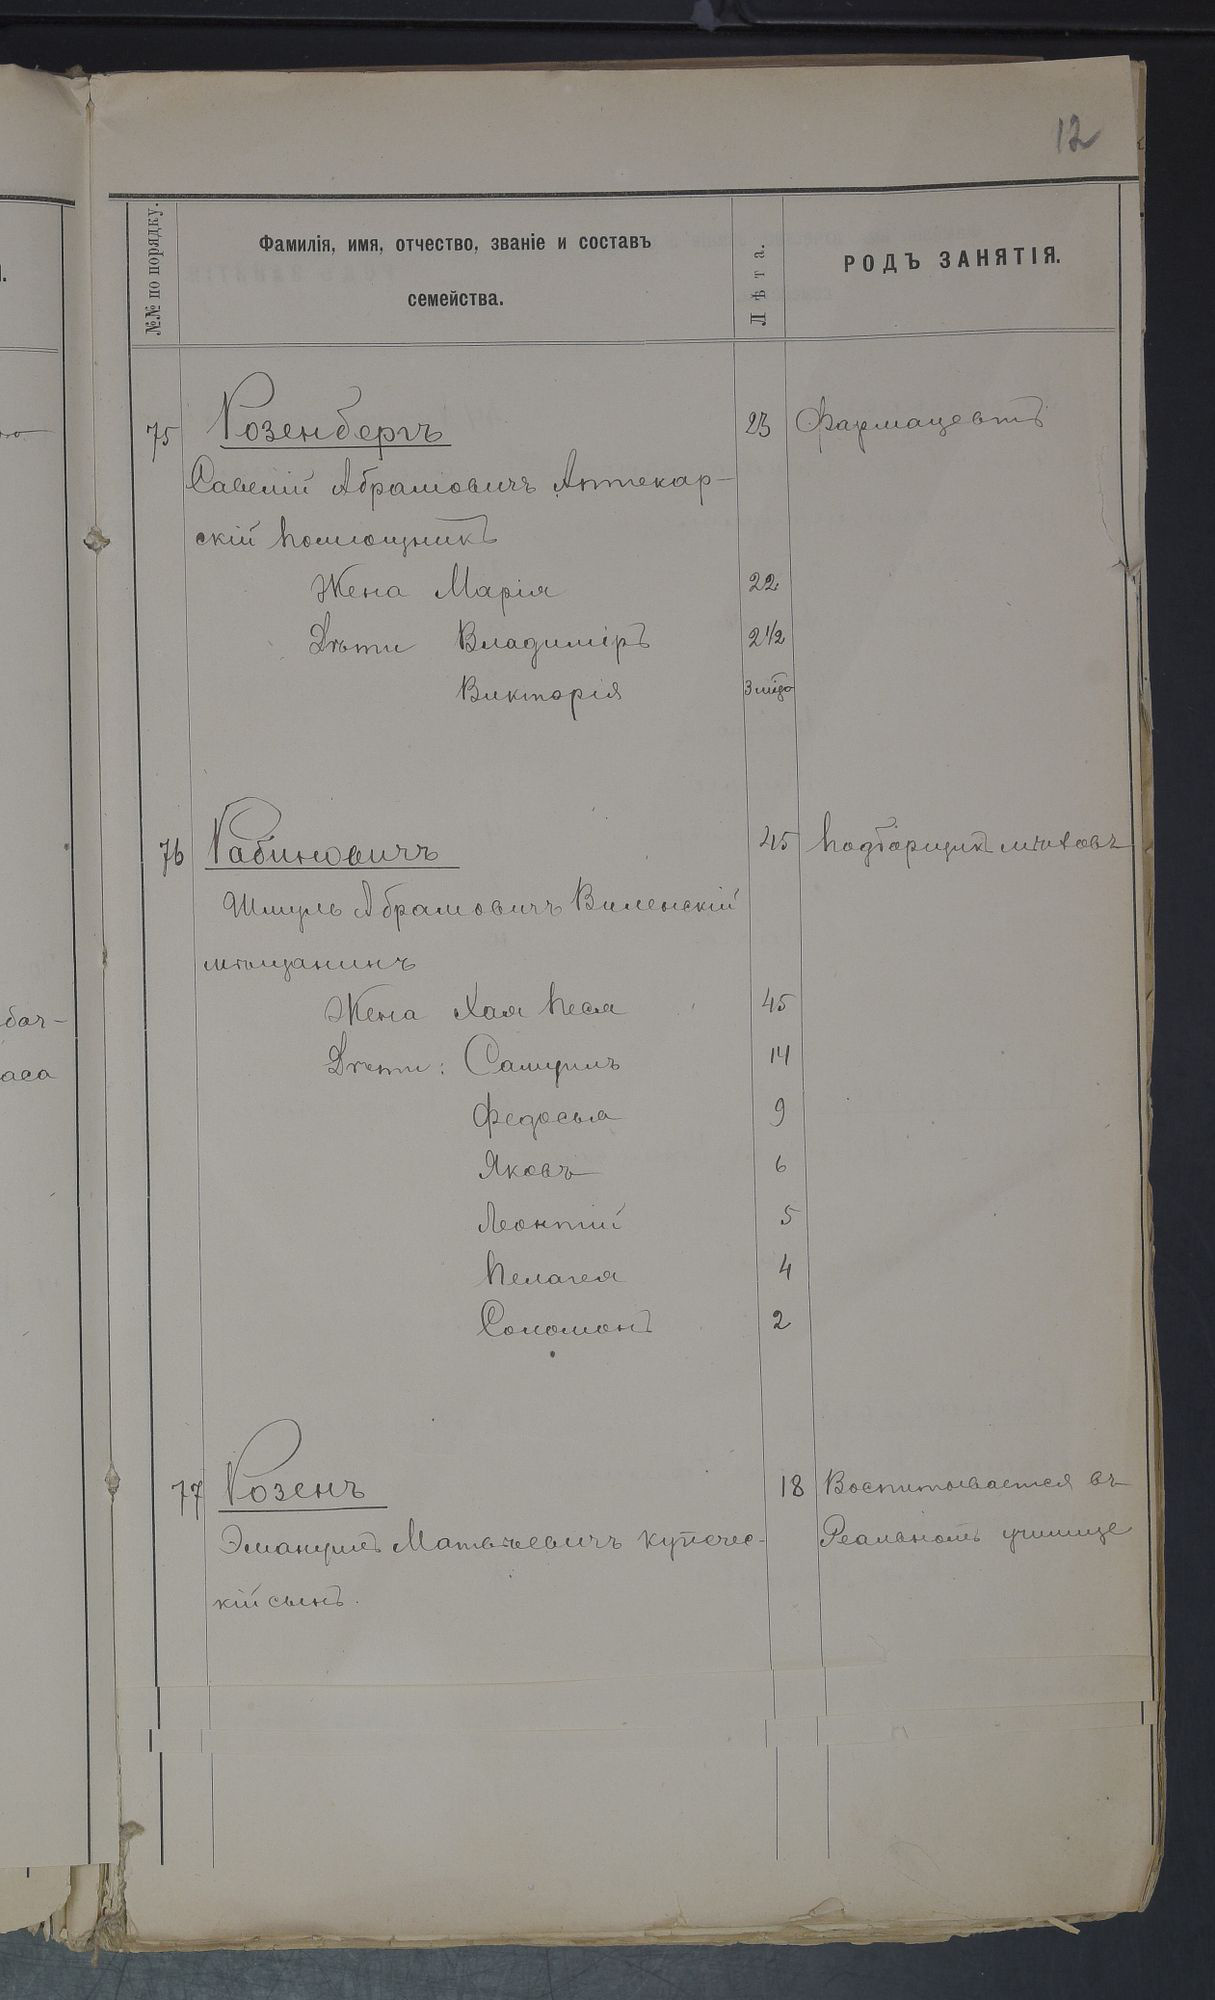 12
№№ по порядку.
Фамилія, имя, отчество, званіе и составъ
семейства.
Лѣта.
РОДЪ ЗАНЯТІЯ.
75 Розенбергъ 23 Фармацевтъ
Савелій Абрамовичъ Аптекар-
скій помощникъ
Жена Марія 22
Дѣти Владиміръ 2 1/2
Викторія 3 мѣс
76 Рабиновичъ 45 Подборщикъ мѣховъ
Шмуль Абрамовичъ Виленскій
мѣщанинъ
Жена Хая Песя 45
Дѣти: Самуилъ 14
Федосья 9
Яковъ 6
Леонтій 5
Пелагея 4
Соломонъ 2
77 Розенъ 18 Воспитывается въ
Эмануилъ Матвѣевичъ купечес- Реальномъ училище
кій сынъ.
бач-
аса